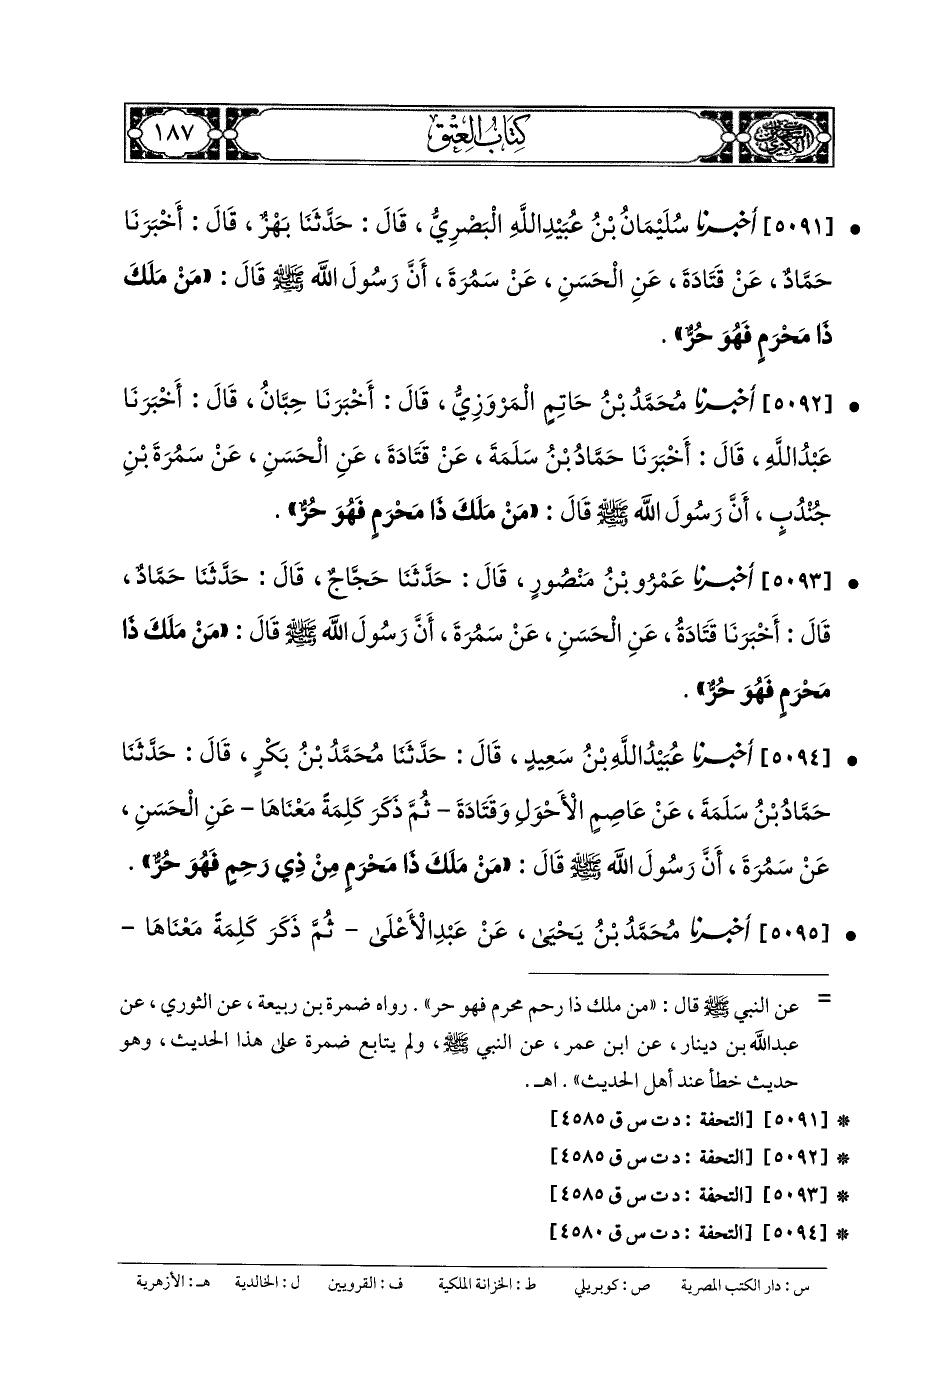 كتاب العتق
١٨٧
• [٥٠٩١] أخبرنا سُلَيْمَانُ بْنُ عُبَيْدِاللَّهِ الْبَصْرِيُّ، قَالَ: حَدَّثَنَا بَهْزٌ، قَالَ: أَخْبَرَنَا
حَمَّادٌ، عَنْ قَتَادَةَ، عَنِ الْحَسَنِ، عَنْ سَمُرَةَ، أَنَّ رَسُولَ اللَّه ﷺ قَالَ: «مَنْ مَلَكَ
ذَا مَحْرَمٍ فَهُوَ حُرٌّ».
• [٥٠٩٢] أخبرنا مُحَمَّدُ بْنُ حَاتِمٍ الْمَرْوَزِيُّ، قَالَ: أَخْبَرَنَا حِبَّانُ، قَالَ: أَخْبَرَنَا
عَبْدُاللَّهِ، قَالَ: أَخْبَرَنَا حَمَّادُ بْنُ سَلَمَةَ، عَنْ قَتَادَةَ، عَنِ الْحَسَنِ، عَنْ سَمُرَةَ بْنِ
جُنْدُبٍ، أَنَّ رَسُولَ اللَّه ﷺ قَالَ: «مَنْ مَلَكَ ذَا مَحْرَمٍ فَهُوَ حُرٌّ».
• [٥٠٩٣] أخبرنا عَمْرُو بْنُ مَنْصُورٍ، قَالَ: حَدَّثَنَا حَجَّاجٌ، قَالَ: حَدَّثَنَا حَمَّادٌ،
قَالَ: أَخْبَرَنَا قَتَادَةُ، عَنِ الْحَسَنِ، عَنْ سَمُرَةَ، أَنَّ رَسُولَ اللَّه ﷺ قَالَ: «مَنْ مَلَكَ ذَا
مَحْرَمٍ فَهُوَ حُرٌّ».
• [٥٠٩٤] أخبرنا عُبَيْدُاللَّهِ بْنُ سَعِيدٍ، قَالَ: حَدَّثَنَا مُحَمَّدُ بْنُ بَكْرٍ، قَالَ: حَدَّثَنَا
حَمَّادُ بْنُ سَلَمَةَ، عَنْ عَاصِمٍ الْأَحْوَلِ وَقَتَادَةَ - ثُمَّ ذَكَرَ كَلِمَةً مَعْنَاهَا - عَنِ الْحَسَنِ،
عَنْ سَمُرَةَ، أَنَّ رَسُولَ اللَّه ﷺ قَالَ: «مَنْ مَلَكَ ذَا مَحْرَمٍ مِنْ ذِي رَحِمٍ فَهُوَ حُرٌّ».
• [٥٠٩٥] أخبرنا مُحَمَّدُ بْنُ يَحْيَى، عَنْ عَبْدِالْأَعْلَى - ثُمَّ ذَكَرَ كَلِمَةً مَعْنَاهَا -
= عن النبي ﷺ قال: «من ملك ذا رحم محرم فهو حر». رواه ضمرة بن ربيعة، عن الثوري، عن
عبدالله بن دينار، عن ابن عمر، عن النبي ﷺ، ولم يتابع ضمرة على هذا الحديث، وهو
حديث خطأ عند أهل الحديث». اهـ.
* [٥٠٩١] [التحفة: د ت س ق ٤٥٨٥]
* [٥٠٩٢] [التحفة: د ت س ق ٤٥٨٥]
* [٥٠٩٣] [التحفة: د ت س ق ٤٥٨٥]
* [٥٠٩٤] [التحفة: د ت س ق ٤٥٨٠]
س: دار الكتب المصرية ص: كوبريلي ط: الخزانة الملكية ف: القرويين ل: الخالدية هـ: الأزهرية